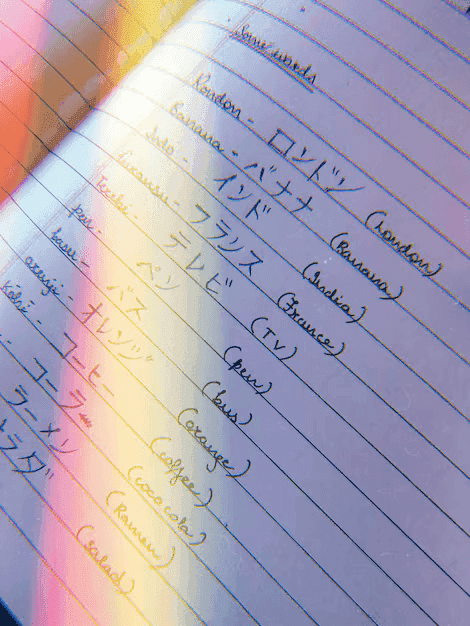 Some words
London - ロンドン (London)
Banana - バナナ (Banana)
Indo - インド (India)
Furansu - フランス (France)
Terebi - テレビ (TV)
pen - ペン (pen)
basu - バス (bus)
orenji - オレンジ (orange)
Kōhī - コーヒー (coffee)
コーラー (coca cola)
ラーメン (Ramen)
ラダ (salad)